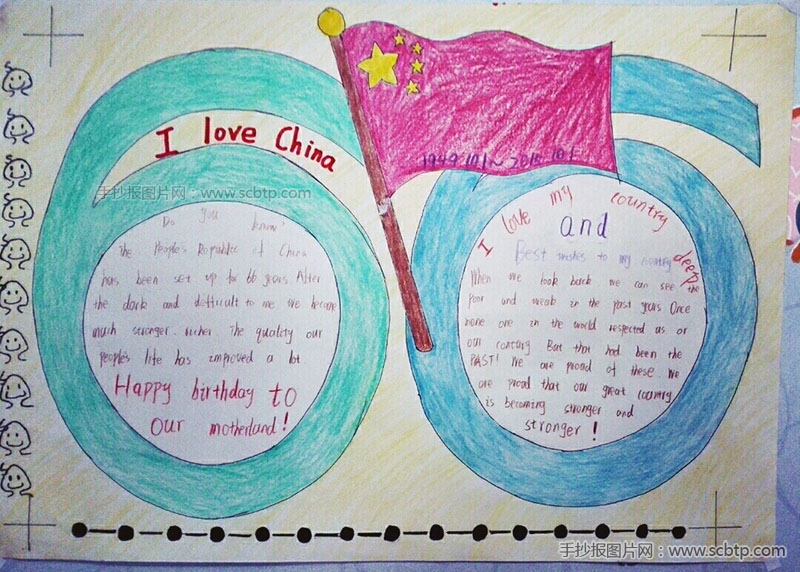 I love China
1949.10.1~2015.10.1
手抄报图片网:www.scbtp.com
Do you know?
The People's Republic of China
has been set up for 66 years. After
the dark and difficult to me we become
much stronger. richer. The quality our
people's life has improved a lot
Happy birthday to
our motherland!
I love my country deep
and
Best wishes to my country
When we look back we can see the
poor and weak in the past years Once
none one in the world respected us or
our contury But that had been the
PAST! We are proud of these We
are proud that our great country
is becoming stronger and
stronger!
手抄报图片网:www.scbtp.com